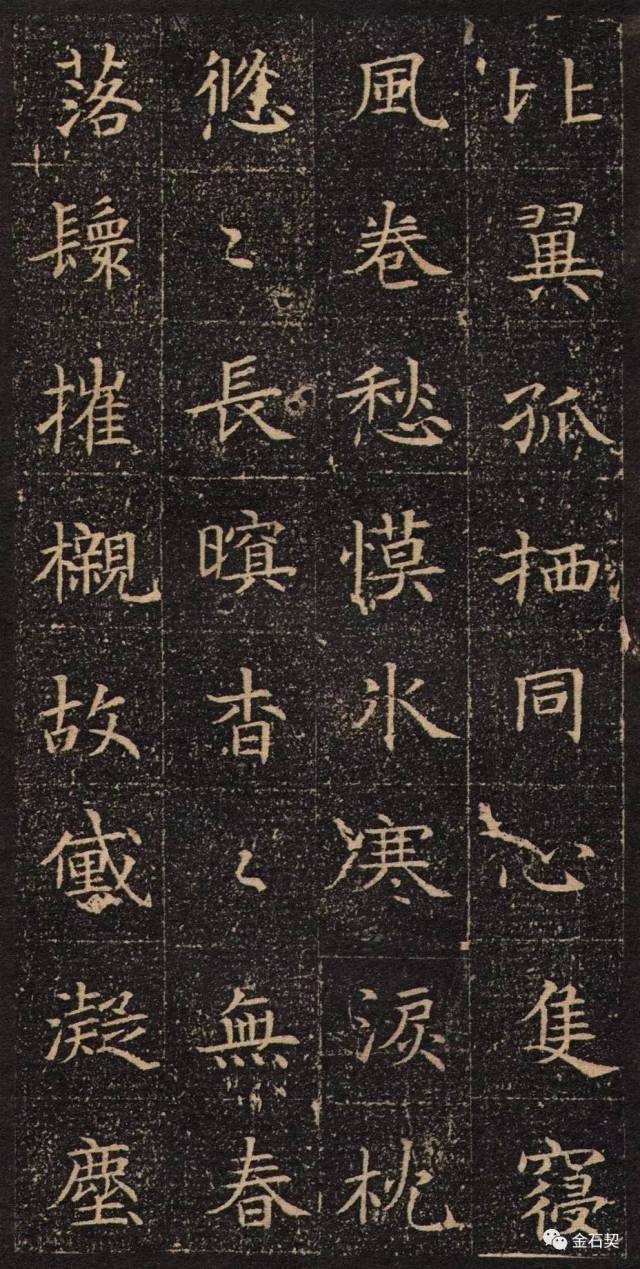 比翼孤栖同心隻寢
風卷愁慔氷寒淚枕
悠〻長暝杳〻無春
落鬟摧櫬故黛凝塵
金石契